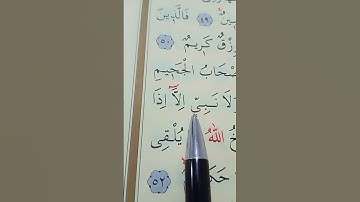 ـبِينٌ ٤٩ فَالَّذِينَ
رِزْقٌ كَرِيمٌ ٥٠
صْحَابُ الْجَحِيمِ
وَلَا نَبِيٍّ اِلَّٓا اِذَا
خُ اللّٰهُ يُلْقِى
حَكِ ٥٢